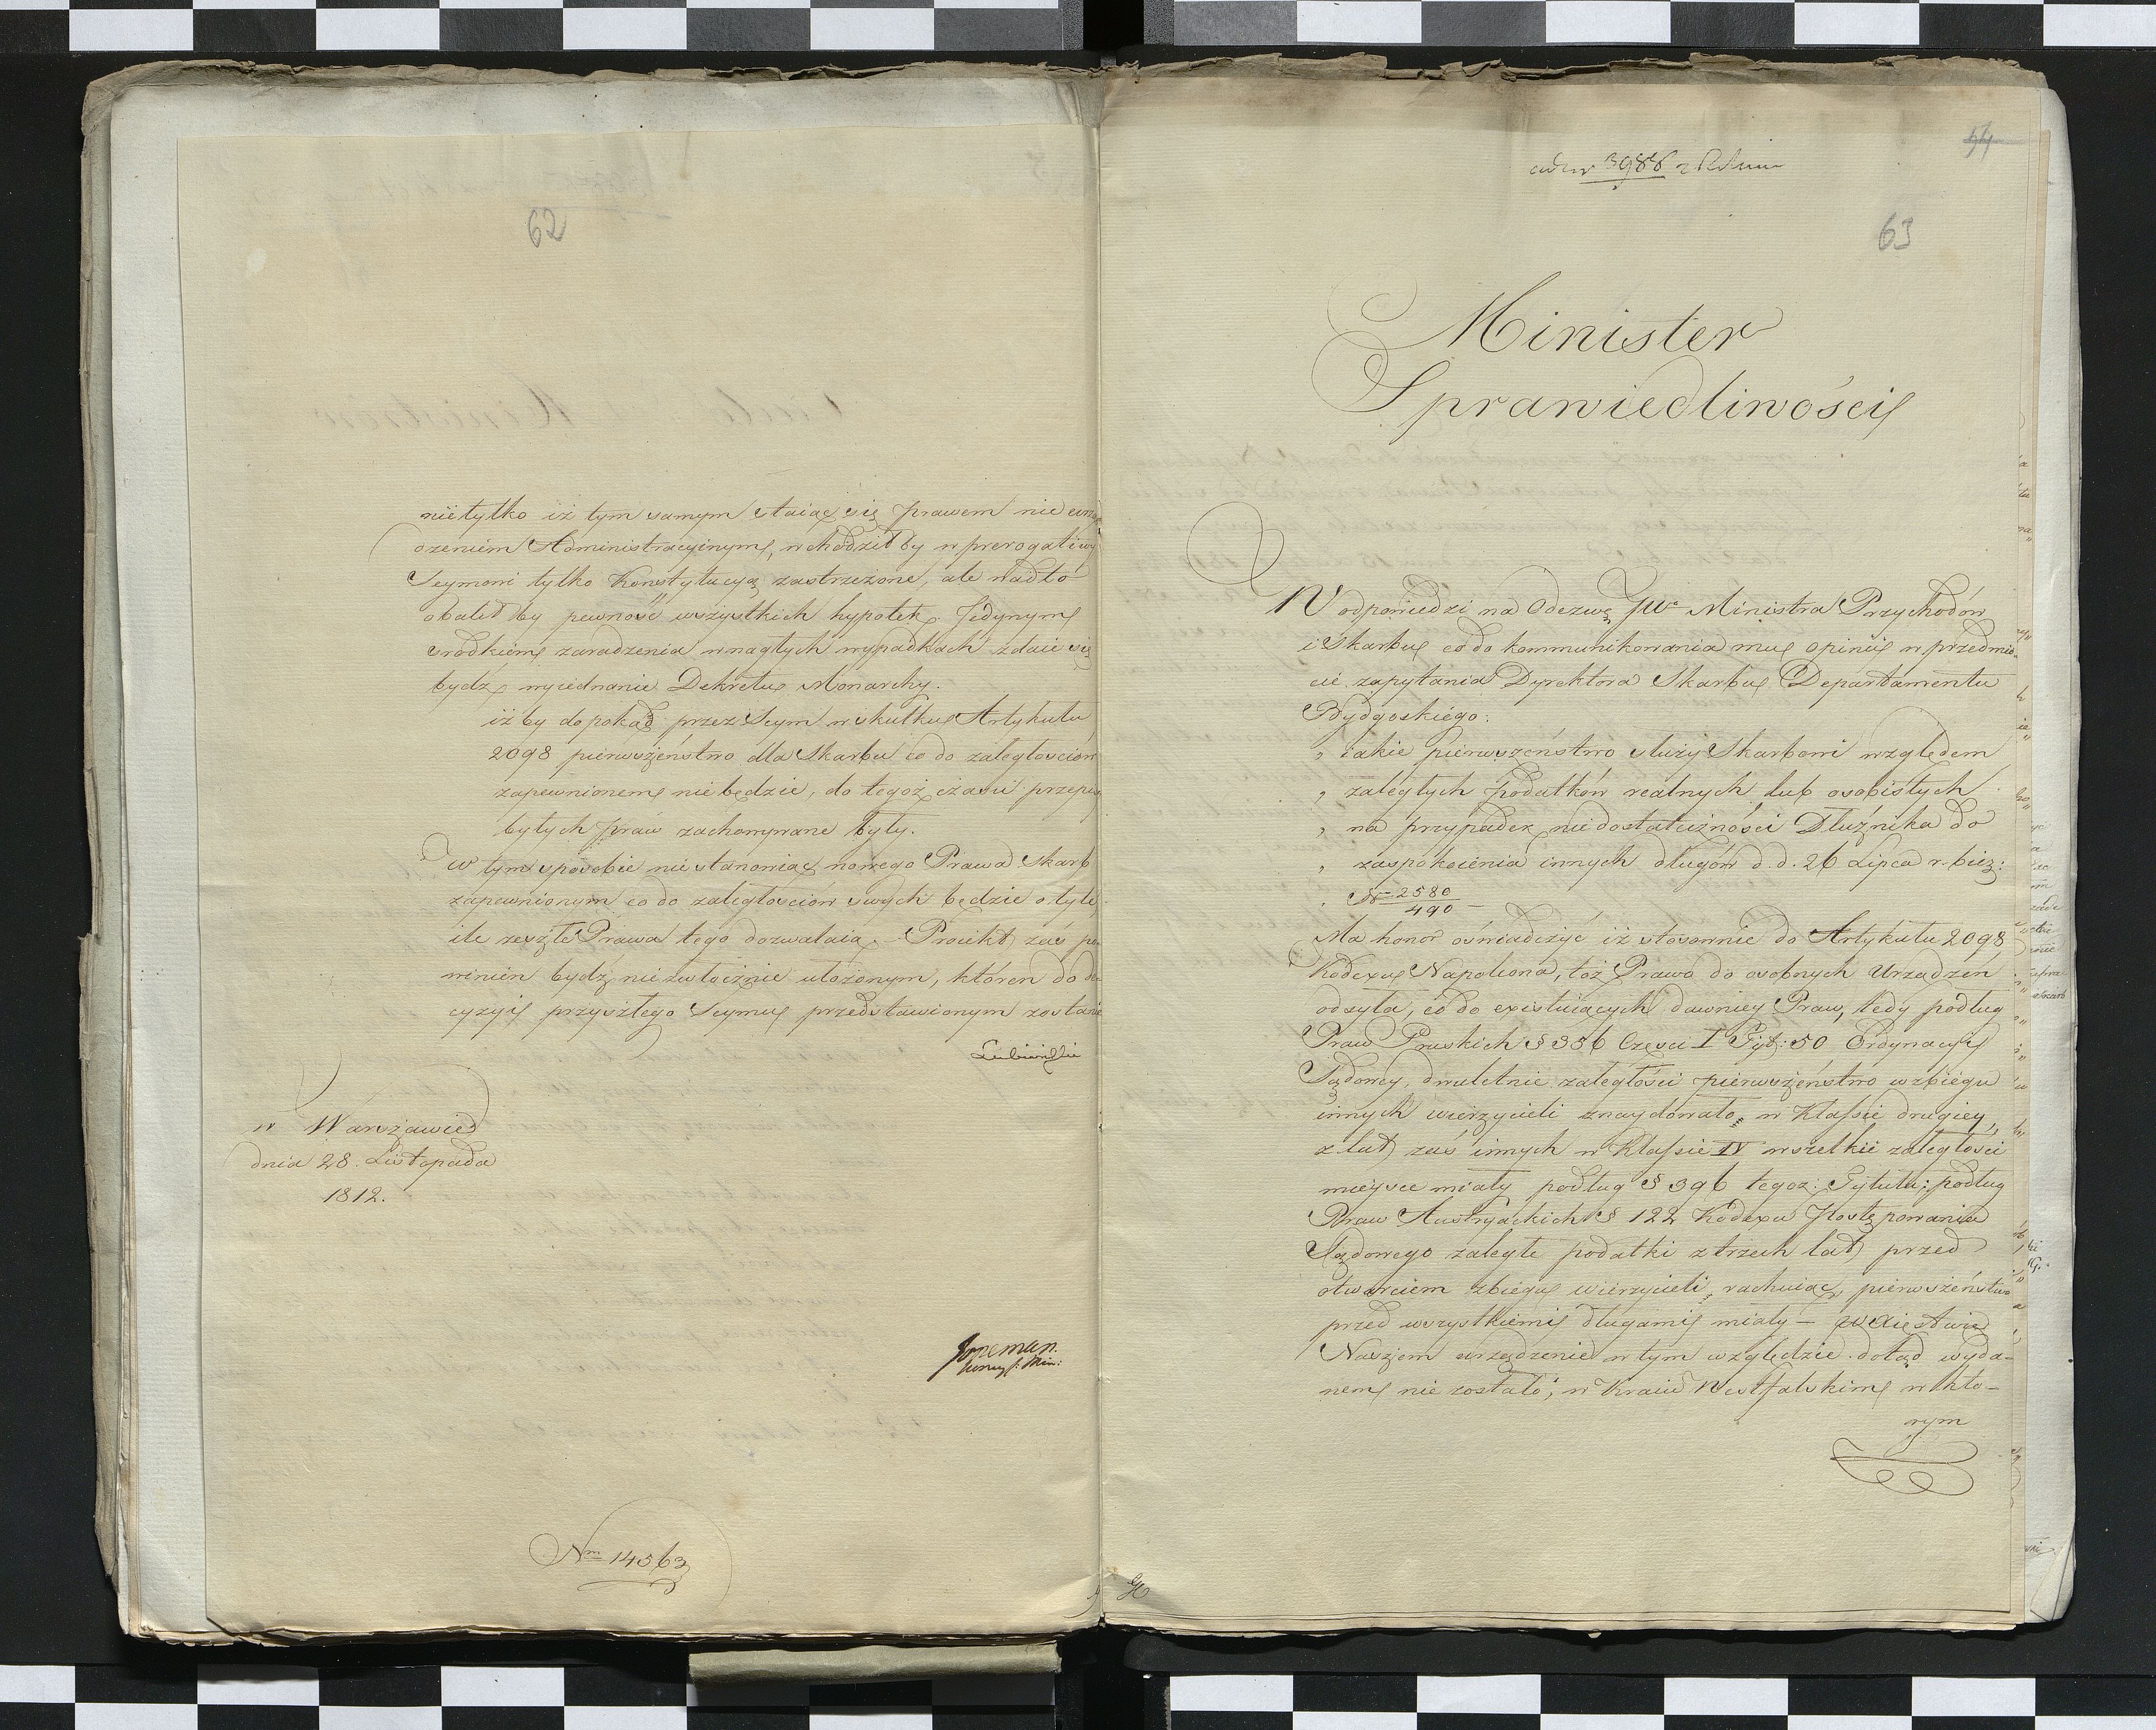 62
nietylko iż tym samym staiąc się prawem nie urzą
dzeniem Administracyinym, wchodził by w prerogatiwy
Seymowi tylko Konstytucyą zastrzeżone, ale nadto
obalił by pewność wszystkich hypotek. Jedynym
srodkiem zaradzenia w nagłych wypadkach zdaie się
bydź wyiednanie Dekretu Monarchy.
iż by dopokąd przez Seym w skutku Artykułu
2098 pierwszeństwo dla Skarbu co do zaległosciów
zapewnionem nie będzie, do tegoż czasu przepisy
byłych praw zachowywane były.
W tym sposobie nie stanowiąc nowego Prawa Skarb
zapewnionym co do zaległosciów swych będzie o tyle
ile reszte Prawa tego dozwalaią. – Proiekt zaś po-
winien bydź niezwłocznie ułożonym, któren do de-
cyzyi przyszłego Seymu przedstawionym zostanie
Łubieński
w Warszawie
dnia 28. Listopada
1812.
Nro 14563
3986
54
63
Minister
Sprawiedliwości
W odpowiedzi na Odezwę JW. Ministra Przychodów
i Skarbu co do kommunikowania mu opinii w przedmio-
cie zapytania Dyrektora Skarbu Departamentu
Bydgoskiego:
„ iakie pierwszeństwo służy Skarbowi względem
„ zaległych podatków realnych lub osobistych
„ na przypadek niedostateczności Dłużnika do
„ zaspokoienia innych długów d. d. 26 Lipca r. bież:
„ Nro 2580/490 –
Ma honor oświadczyć iż stosownie do Artykułu 2098
Kodexu Napoleona, toż Prawo do osobnych Urządzeń
odsyła, co do existuiących dawniey Praw, tedy podług
Praw Pruskich § 356 Częsci I Tyt: 50 Ordynacyi
Sądowey, dwuletnie zaległości pierwszeństwo w zbiegu
innych wierzycieli znaydowało w Klassie drugiey,
z lat zaś innych w Klassie IV wszelkie zaległości
mieysce miały podług § 396 tegoż Tytułu; podług
Praw Austryackich § 122 Kodexu Postępowania
Sądowego zaległe podatki z trzech lat przed
otwarciem zbiegu wierzycieli rachuiąc, pierwszeństwo
przed wszystkiemi długami miały – w Xięstwie
Naszem urządzenie w tym względzie dotąd wyda-
nem nie zostało; w Kraiu Westfalskim w któ-
rym